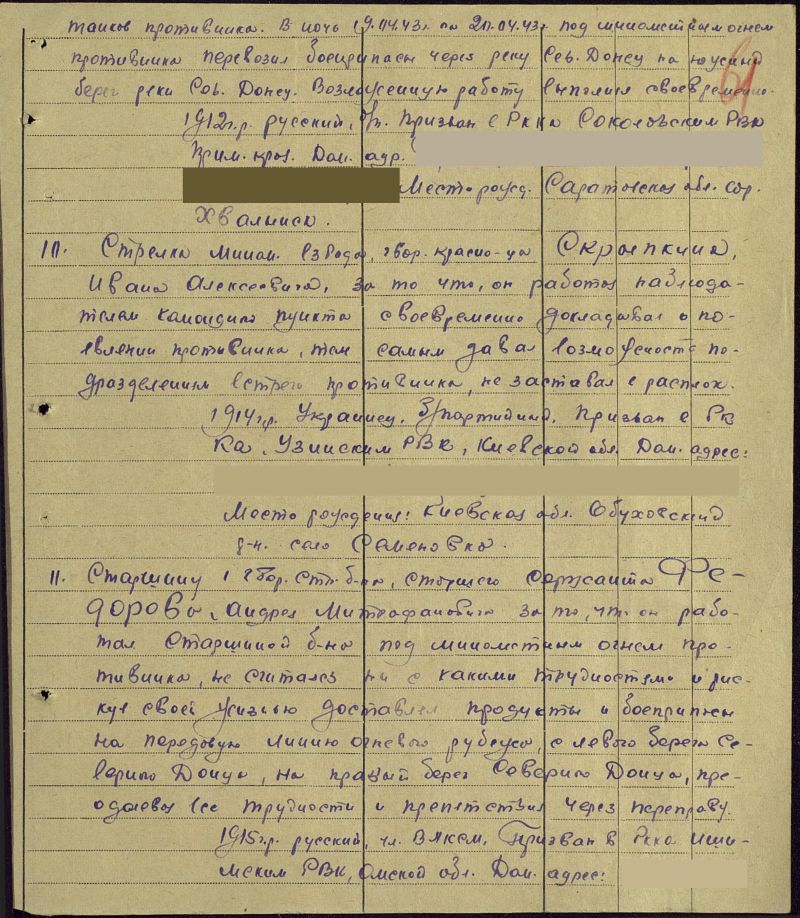 танков противника. В ночь 19.04.43г. на 20.04.43г под минометным огнем
противника перевозил боеприпасы через реку Сев. Донец на южный
берег реки Сев. Донец. Возложенную работу выполнил своевременно.
61
1912 г.р. русский, б/п. Призван в Ркка Соколовским РВК
Прим. край. Дом. адр.
Место рожд. Саратовская обл. гор.
Хвалынск.
10. Стрелка Мином. взвода, гвар. красно-ца Скрыпкина,
Ивана Алексеевича, за то что, он работая наблюда-
телем командного пункта своевременно докладывал о по-
явлении противника, тем самым давал возможность по-
дразделениям встреч противника, не заставал в расплох.
1914 г.р. Украинец, б/партийный. Призван в РК
Ка, Узинским РВК, Киевской обл. Дом. адрес:
Место рождения: Киевская обл. Обуховский
р-н. село Семеновка.
11. Старшину 1 гвар. стр. б-на, старшего сержанта Фе-
дорова, Андрея Митрофановича за то, что он рабо-
тая Старшиной б-на под минометным огнем про-
тивника, не считаясь ни с какими трудностями и рис-
куя своей жизнью доставлял продукты и боеприпасы
на передовую линию огневого рубежа, с левого берега Се-
верного Донца, на правый берег Северного Донца, пре-
одолевая все трудности и препятствия через переправу.
1915 г.р. русский, чл. ВЛКСМ. Призван в Ркка Иши-
мским РВК, Омской обл. Дом. адрес: